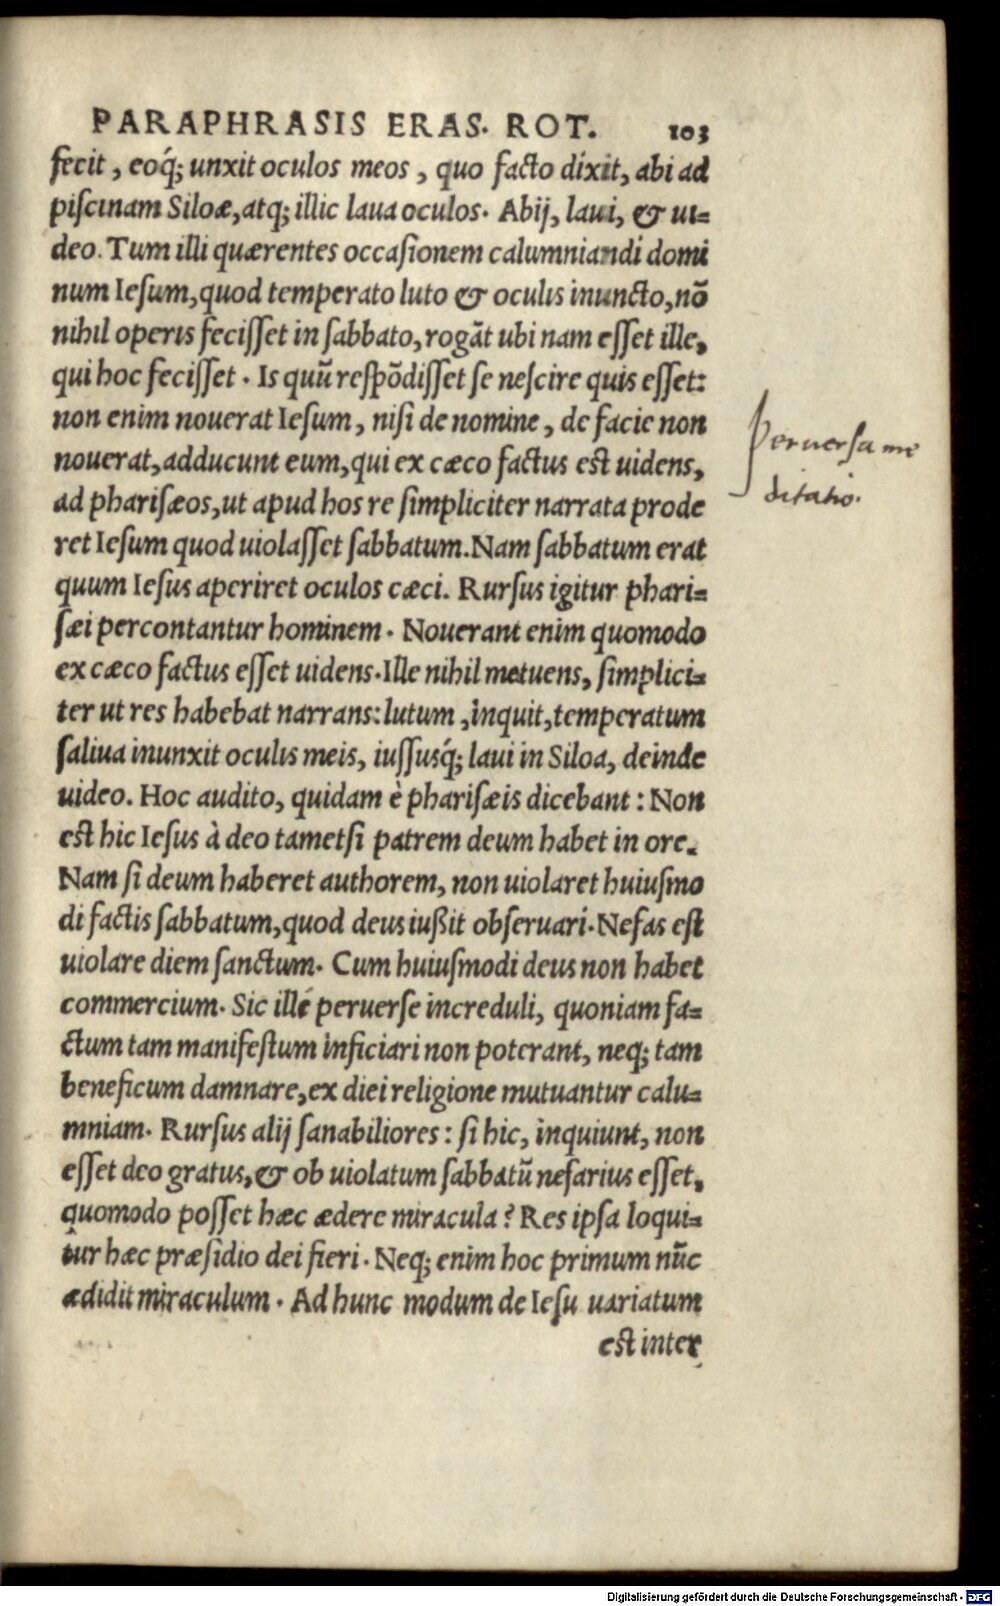 PARAPHRASIS ERAS. ROT. 103
fecit, eoq́; unxit oculos meos, quo facto dixit, abi ad
piſcinam Siloæ, atq; illic laua oculos. Abij, laui, & ui=
deo. Tum illi quærentes occaſionem calumniandi domi
num Ieſum, quod temperato luto & oculis inuncto, nõ
nihil operis feciſſet in ſabbato, rogãt ubi nam eſſet ille,
qui hoc feciſſet. Is quũ reſpõdiſſet ſe neſcire quis eſſet:
non enim nouerat Ieſum, niſi de nomine, de facie non
nouerat, adducunt eum, qui ex cæco factus eſt uidens,
ad phariſæos, ut apud hos re ſimpliciter narrata prode
ret Ieſum quod uiolaſſet ſabbatum. Nam ſabbatum erat
quum Ieſus aperiret oculos cæci. Rurſus igitur phari=
ſæi percontantur hominem. Nouerant enim quomodo
ex cæco factus eſſet uidens. Ille nihil metuens, ſimplici=
ter ut res habebat narrans: lutum, inquit, temperatum
ſaliua inunxit oculis meis, iuſſusq́; laui in Siloa, deinde
uideo. Hoc audito, quidam è phariſæis dicebant: Non
est hic Ieſus à deo tametſi patrem deum habet in ore.
Nam ſi deum haberet authorem, non uiolaret huiuſmo
di factis ſabbatum, quod deus iußit obſeruari. Nefas eſt
uiolare diem ſanctum. Cum huiuſmodi deus non habet
commercium. Sic illé peruerſe increduli, quoniam fa=
ctum tam manifeſtum inficiari non poterant, neq; tam
beneficum damnare, ex diei religione mutuantur calu=
mniam. Rurſus alij ſanabiliores: ſi hic, inquiunt, non
eſſet deo gratus, & ob uiolatum ſabbatũ nefarius eſſet,
quomodo poſſet hæc ædere miracula? Res ipſa loqui=
tur hæc præſidio dei fieri. Neq; enim hoc primum nũc
ædidit miraculum. Ad hunc modum de Ieſu uariatum
eſt inter
Peruerſa me
ditatio.
Digitalisierung gefördert durch die Deutsche Forschungsgemeinschaft - DFG